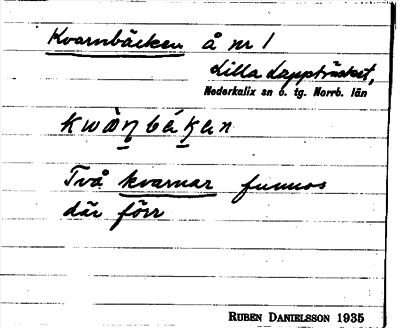 Kvarnbäcken å nr 1
Lilla Lappträsket,
Nederkalix sn ö. tg. Norrb. län
Två kvarnar funnos
där förr
RUBEN DANIELSSON 1935